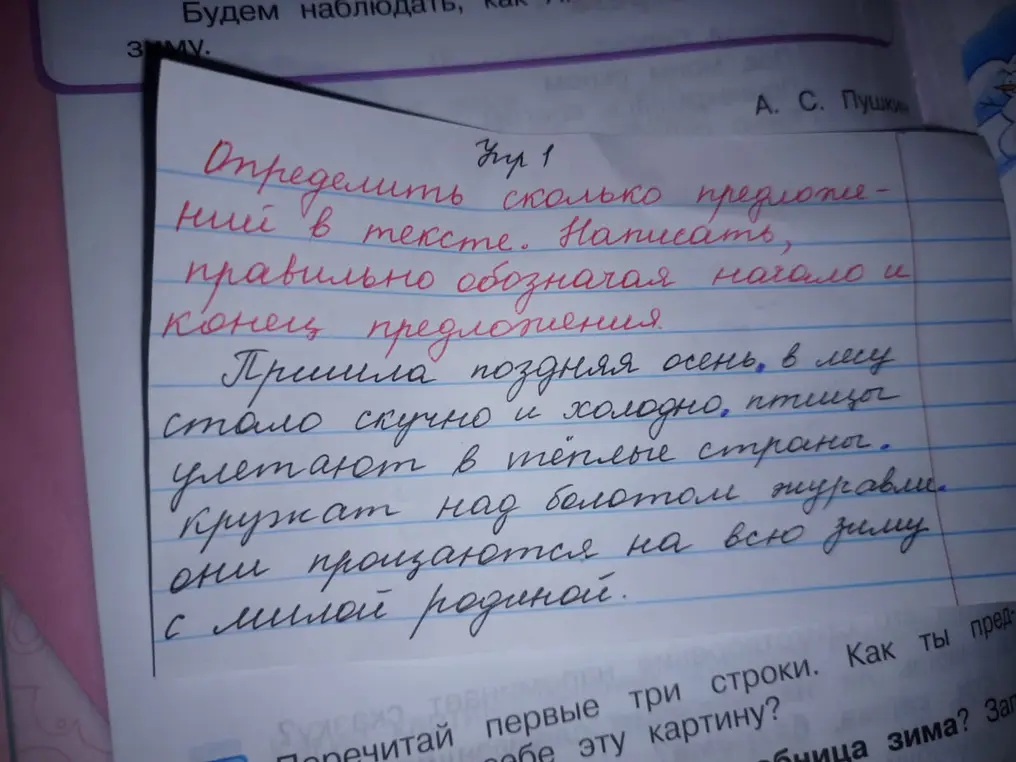 Будем наблюдать, как
зиму.
А. С. Пушкин
Упр 1
Определить сколько предложе-
ний в тексте. Написать,
правильно обозначая начало и
конец предложения.
Пришла поздняя осень. в лесу
стало скучно и холодно. птицы
улетают в тёплые страны.
кружат над болотом журавли.
они прощаются на всю зиму
с милой родиной.
Перечитай первые три строки. Как ты пред-
себе эту картину?
зима? Зап